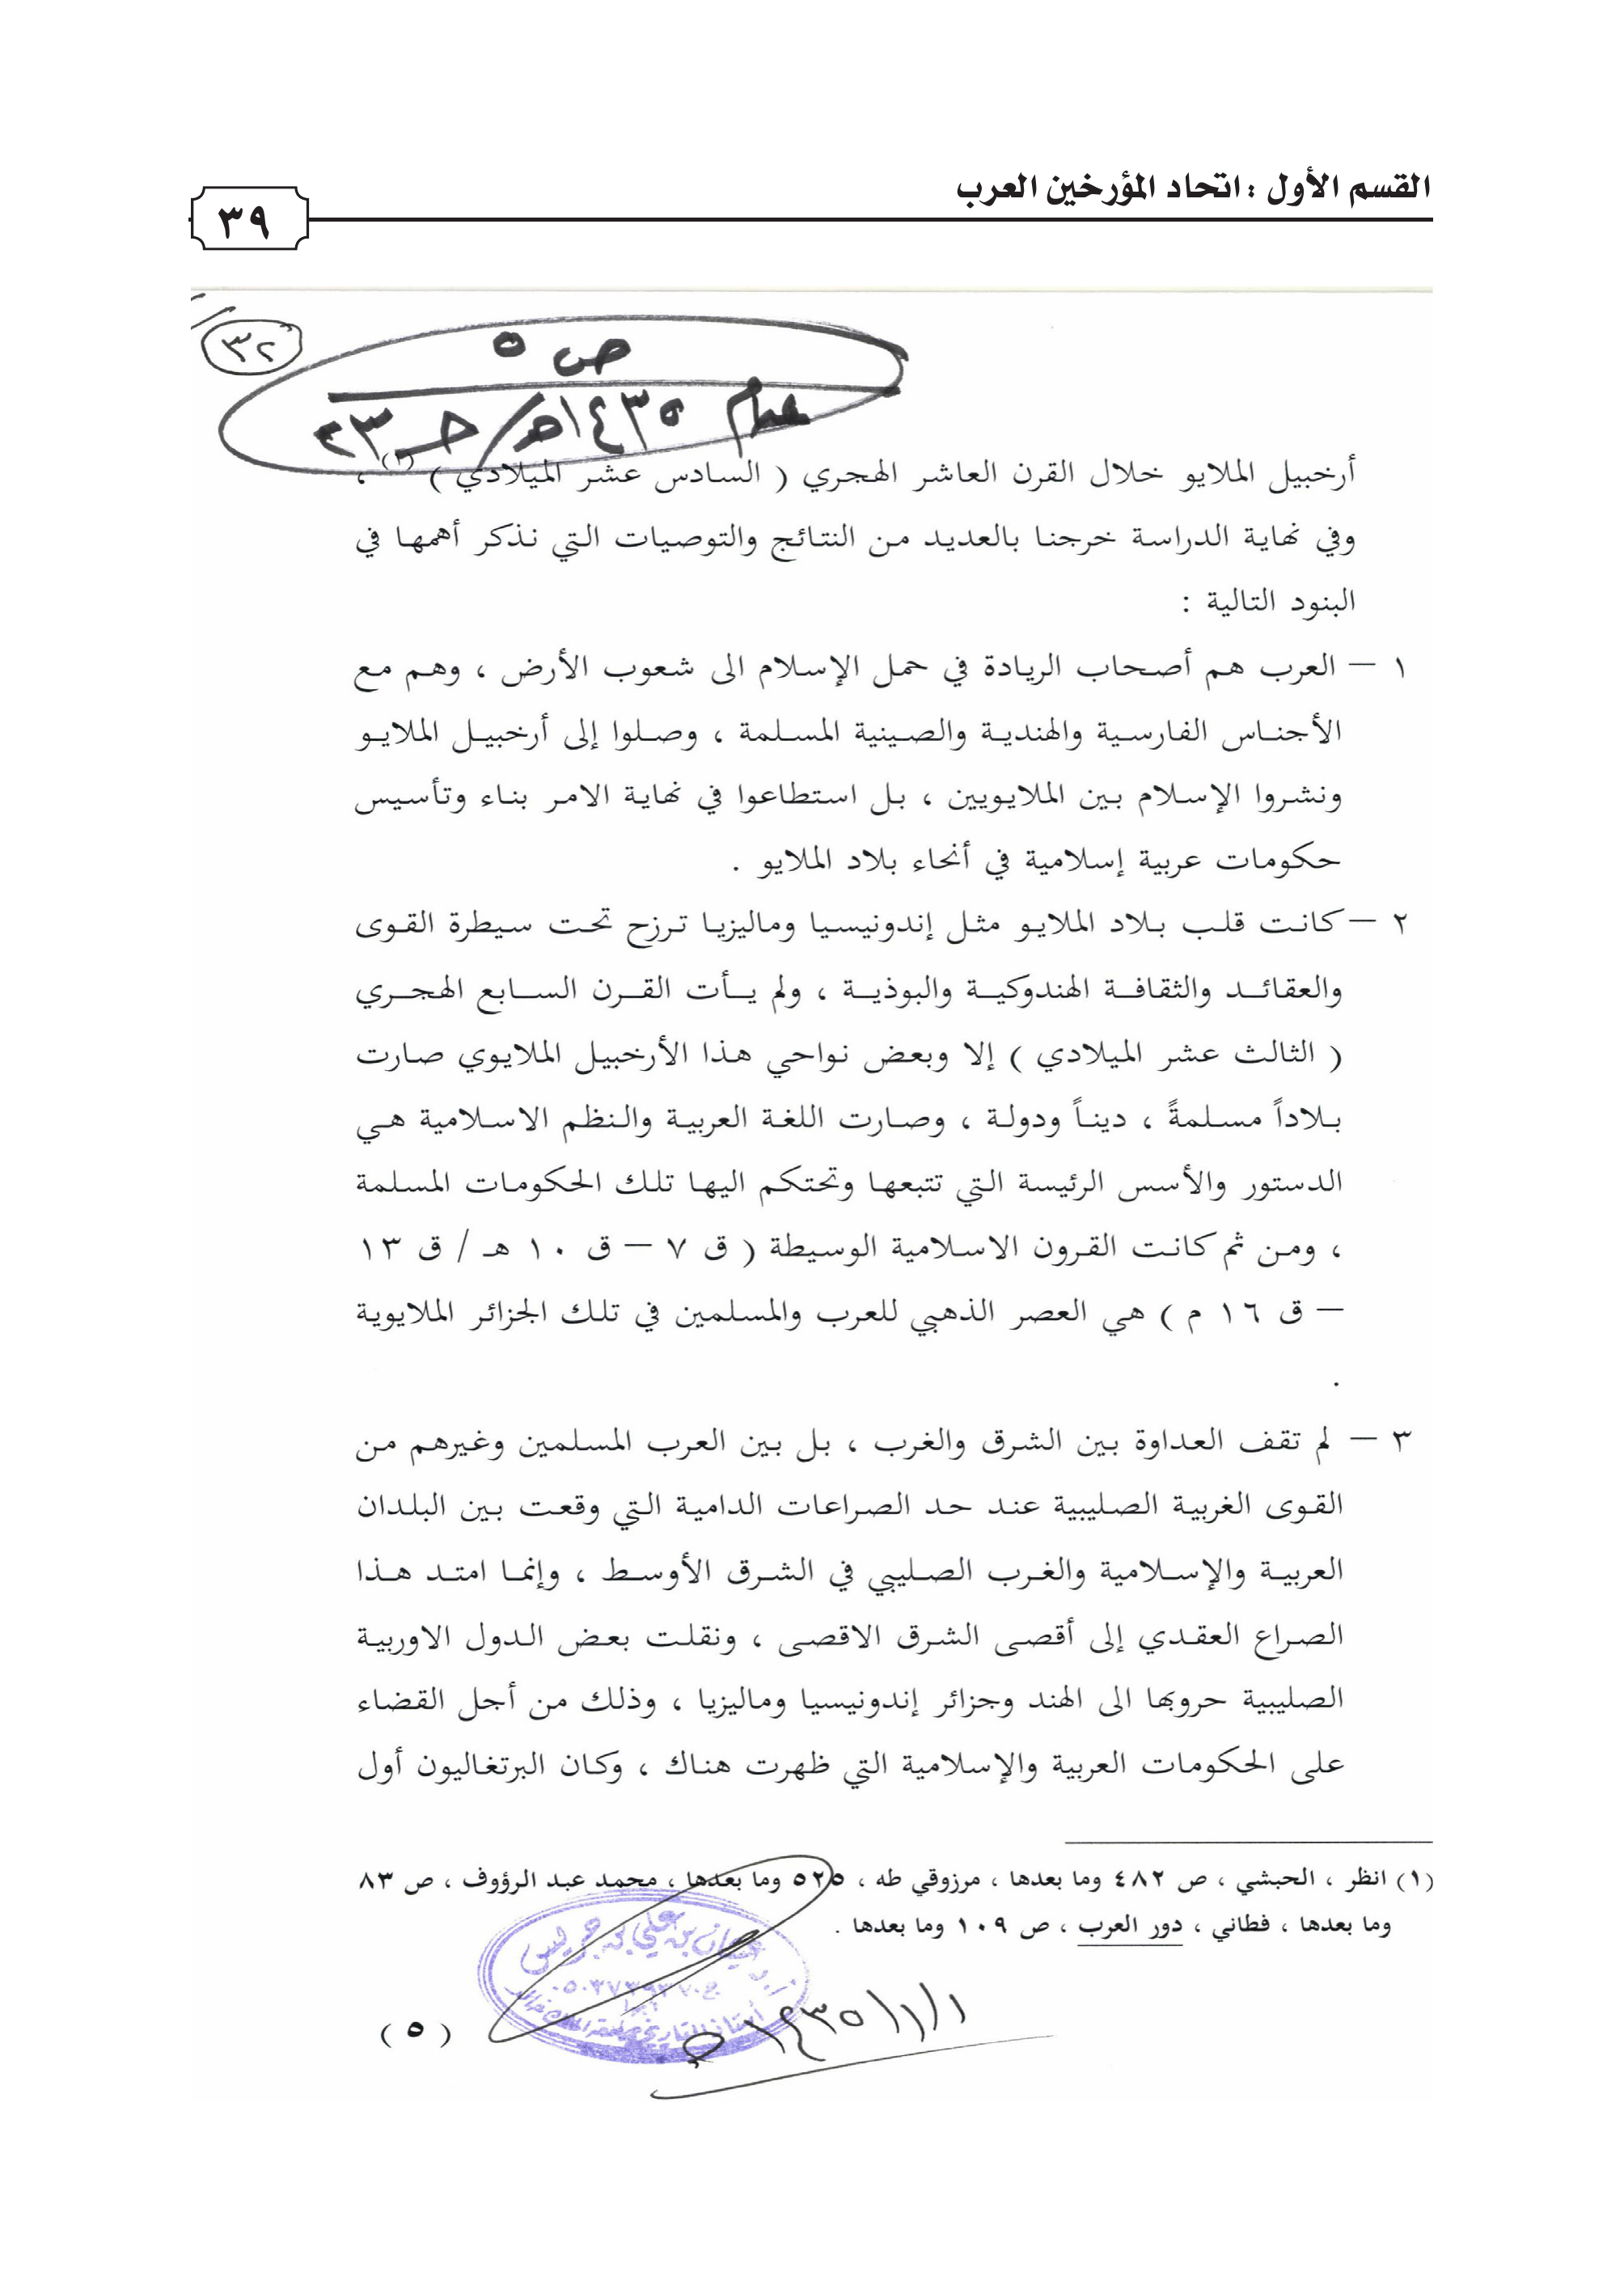 القسم الأول : اتحاد المؤرخين العرب
٣٩
٣٢
ص ٥
عام ١٤٣٥هـ / جـ ٢٣
أرخبيل الملايو خلال القرن العاشر الهجري ( السادس عشر الميلادي ) (١) ،
وفي نهاية الدراسة خرجنا بالعديد من النتائج والتوصيات التي نذكر أهمها في
البنود التالية :
١ – العرب هم أصحاب الريادة في حمل الإسلام الى شعوب الأرض ، وهم مع
الأجناس الفارسية والهندية والصينية المسلمة ، وصلوا إلى أرخبيل الملايو
ونشروا الإسلام بين الملايويين ، بل استطاعوا في نهاية الامر بناء وتأسيس
حكومات عربية إسلامية في أنحاء بلاد الملايو .
٢ – كانت قلب بلاد الملايو مثل إندونيسيا وماليزيا ترزح تحت سيطرة القوى
والعقائد والثقافة الهندوكية والبوذية ، ولم يأت القرن السابع الهجري
( الثالث عشر الميلادي ) إلا وبعض نواحي هذا الأرخبيل الملايوي صارت
بلاداً مسلمةً ، ديناً ودولة ، وصارت اللغة العربية والنظم الاسلامية هي
الدستور والأسس الرئيسة التي تتبعها وتحتكم اليها تلك الحكومات المسلمة
، ومن ثم كانت القرون الاسلامية الوسيطة ( ق ٧ – ق ١٠ هـ / ق ١٣
– ق ١٦ م ) هي العصر الذهبي للعرب والمسلمين في تلك الجزائر الملايوية
.
٣ – لم تقف العداوة بين الشرق والغرب ، بل بين العرب المسلمين وغيرهم من
القوى الغربية الصليبية عند حد الصراعات الدامية التي وقعت بين البلدان
العربية والإسلامية والغرب الصليبي في الشرق الأوسط ، وإنما امتد هذا
الصراع العقدي إلى أقصى الشرق الاقصى ، ونقلت بعض الدول الاوربية
الصليبية حروبها الى الهند وجزائر إندونيسيا وماليزيا ، وذلك من أجل القضاء
على الحكومات العربية والإسلامية التي ظهرت هناك ، وكان البرتغاليون أول
(١) انظر ، الحبشي ، ص ٤٨٢ وما بعدها ، مرزوقي طه ، ٥٢٥ وما بعدها ، محمد عبد الرؤوف ، ص ٨٣
وما بعدها ، فطاني ، دور العرب ، ص ١٠٩ وما بعدها .
بن علي بن جريس
١٤٣٥/١/١هـ
( ٥ )